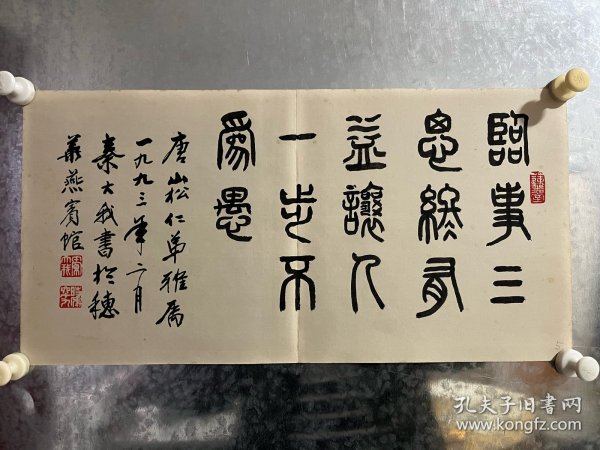 臨事三
思終有
益讓人
一步不
爲愚
唐山松仁弟雅属
一九九三年二月
秦大我書於穗
華燕賓馆
孔夫子旧書网
www.kongfz.com